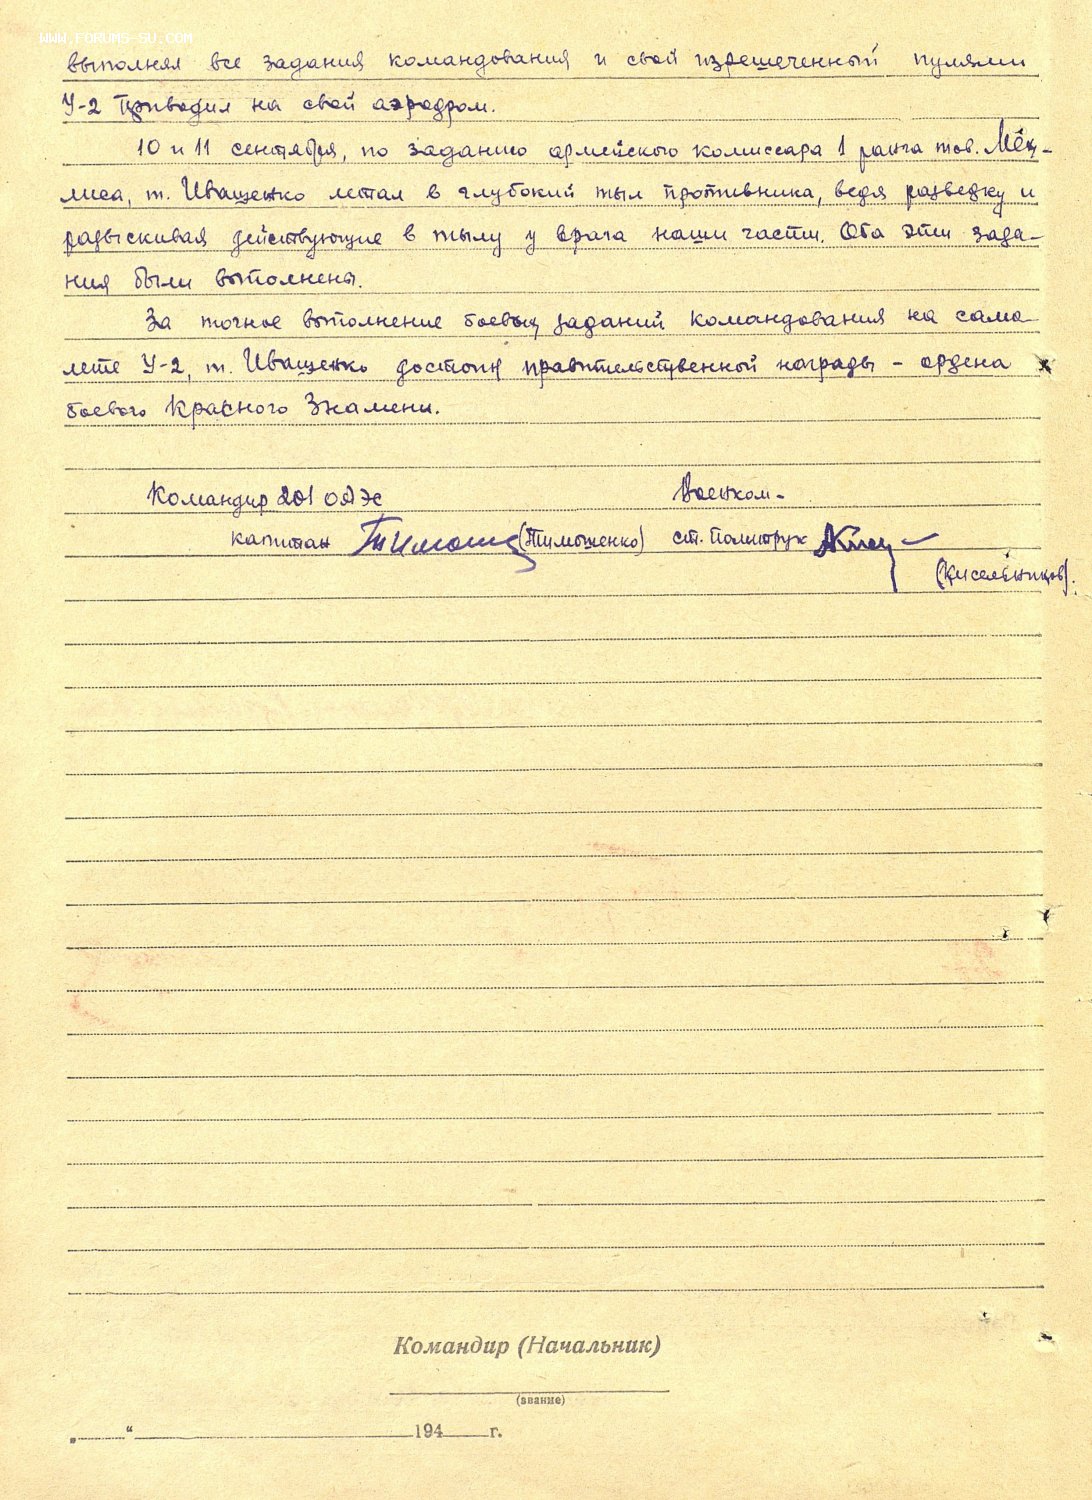 WWW.FORUMS-SU.COM
выполнял все задания командования и свой изрешеченный пулями
У-2 приводил на свой аэродром.
10 и 11 сентября, по заданию армейского комиссара 1 ранга тов. Мех-
лиса, т. Иващенко летал в глубокий тыл противника, ведя разведку и
разыскивая действующие в тылу у врага наши части. Оба эти зада-
ния были выполнены.
За точное выполнение боевых заданий командования на само-
лете У-2, т. Иващенко достоин правительственной награды – ордена
боевого Красного Знамени.
Командир 201 Военком-
капитан (Тимошенко) ст. политрук
(Кисельников).
Командир (Начальник)
(звание)
„ “ 194 г.